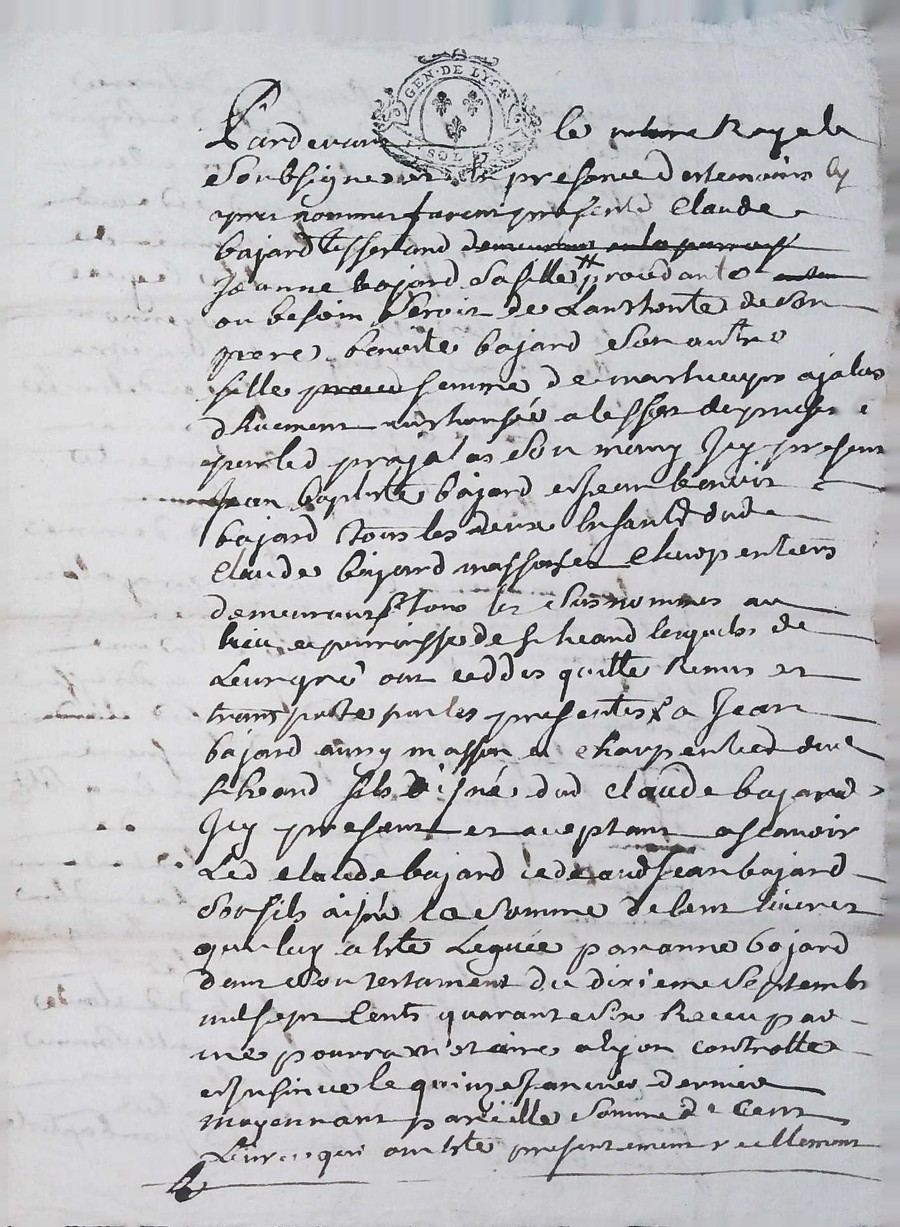 GEN. DE LYON
Pardevant le notaire Royal
Soubsigné et en presence des temoins cy
apres nommes furent presents Claude
bajard tisserand demeurant en la parroisse
Jeanne bajard sa fille procedante
au besoin seroit de Lauthorité de son
pere benoite bajard son autre
fille femme de prajalas
dhuement authorisée a leffet des presentes
par led prajalas son mary Icy present
Jean baptiste bajard et Jean benoist
bajard tous les deux Enfants dud
Claude bajard massons et charpentiers
demeurants tous les susnommes au
lieu et parroisse de st heand lesquels de
leur gré ont ceddés quitté Remis et
transporté par les presentes a Jean
bajard aussy masson et charpentier dud
st heand fils aisné dud Claude bajard
Icy present et aceptant ascavoir
Led Claude bajard cede aud Jean bajard
son fils aisné la somme de Cent livres
que luy a esté Leguée par anne bajard
dans son testament du dixieme Septembre
mil sept Cents quarante six Receu par
me pourra notaire a lyon controllé
et Insinué le quinze Janvier dernier
moyennant pareille somme de Cent
Livres qui ont esté presentement reellement